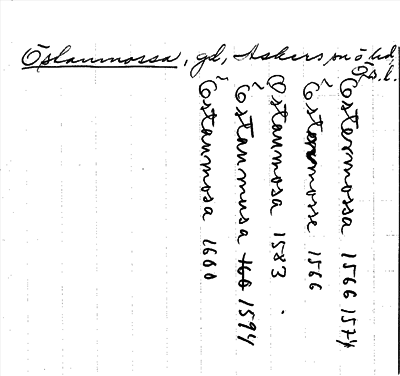 Östanmossa, gd, Askers sn o hd,
Ös.l.
Östermossa 1566 1574
Östermosse 1566
Östanmosa 1583.
Östanmusa 1594
Östanmosa 1600